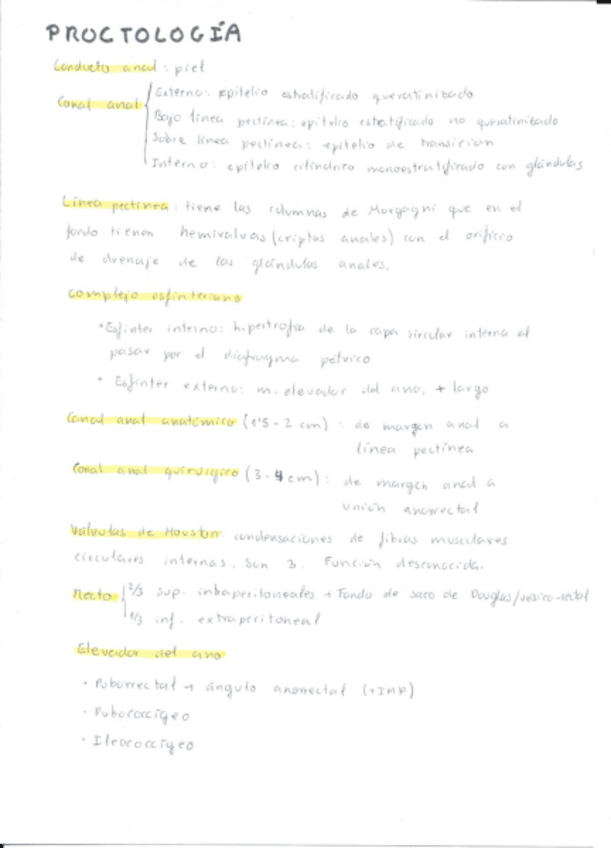 PROCTOLOGÍA
Conducto anal: piel
Canal anal
Externo: epitelio estratificado queratinizado
Bajo línea pectínea: epitelio estratificado no queratinizado
Sobre línea pectínea: epitelio de transición
Interno: epitelio cilíndrico monoestratificado con glándulas
Línea pectínea: tiene las columnas de Morgagni que en el
fondo tienen hemivalvas (criptas anales) con el orificio
de drenaje de las glándulas anales.
Complejo esfinteriano
• Esfínter interno: hipertrofia de la capa circular interna al
pasar por el diafragma pélvico
• Esfínter externo: m. elevador del ano, + largo
Canal anal anatómico (1'5 - 2 cm): de margen anal a
línea pectínea
Canal anal quirúrgico (3-4 cm): de margen anal a
unión anorrectal
Válvulas de Houston: condensaciones de fibras musculares
circulares internas. Son 3. Función desconocida.
Recto
2/3 sup. intraperitoneales → Fondo de saco de Douglas/vesico-rectal
1/3 inf. extraperitoneal
Elevador del ano
• Puborrectal → ángulo anorrectal (+IMP)
• Pubococcígeo
• Ileococcígeo